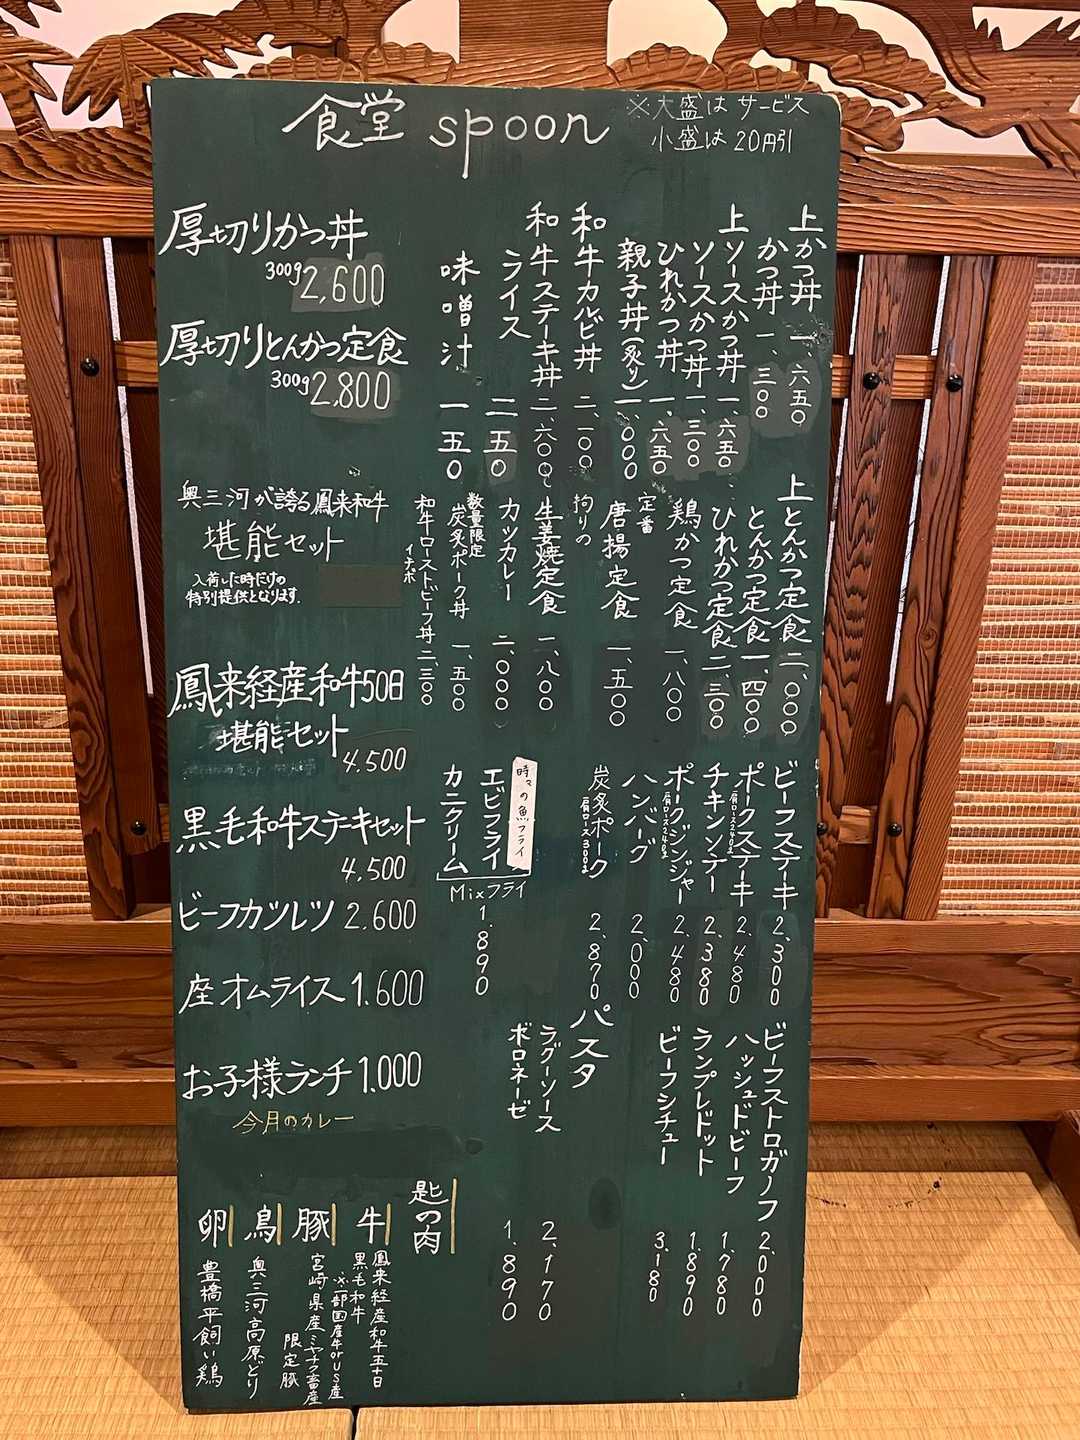 食堂 spoon
※大盛は サービス
小盛は 20円引
上かつ丼 一、六五〇
かつ丼 一、三〇〇
上ソースかつ丼 一、六五〇
ソースかつ丼 一、三〇〇
ひれかつ丼 一、六五〇
親子丼(炙り) 一、〇〇〇
和牛カルビ丼 二、一〇〇
和牛ステーキ丼 二、六〇〇
ライス 二五〇
味噌汁 一五〇
上とんかつ定食 二、〇〇〇
とんかつ定食 一、四〇〇
ひれかつ定食 二、三〇〇
鶏かつ定食 一、八〇〇
定番
唐揚定食 一、五〇〇
拘りの
生姜焼定食 一、八〇〇
カツカレー 二、〇〇〇
数量限定
炭炙ポーク丼 一、五〇〇
和牛ローストビーフ丼 二、三〇〇
イチボ
ビーフステーキ 2,300
ポークステーキ 2,480
肩ロース240g
チキンソテー 2,380
ポークジンジャー 2,480
肩ロース240g
ハンバーグ 2,000
炭炙ポーク 2,870
肩ロース300g
時々の魚フライ
エビフライ
カニクリーム
Mixフライ
1.890
ビーフストロガノフ 2,000
ハッシュドビーフ 1,780
ランプレドット 1,890
ビーフシチュー 3,180
パスタ
ラグーソース 2,170
ボロネーゼ 1,890
厚切りかつ丼
300g 2,600
厚切りとんかつ定食
300g 2,800
奥三河が誇る鳳来和牛
堪能セット
入荷した時だけの
特別提供となります。
鳳来経産和牛50日
堪能セット
4.500
黒毛和牛ステーキセット
4,500
ビーフカツレツ 2,600
座オムライス 1.600
お子様ランチ 1.000
今月のカレー
匙の肉
牛
鳳来経産和牛五十日
黒毛和牛
※一部国産牛orUS産
豚
宮崎県産ミヤチク畜産
限定豚
鳥
奥三河高原どり
卵
豊橋平飼い鶏